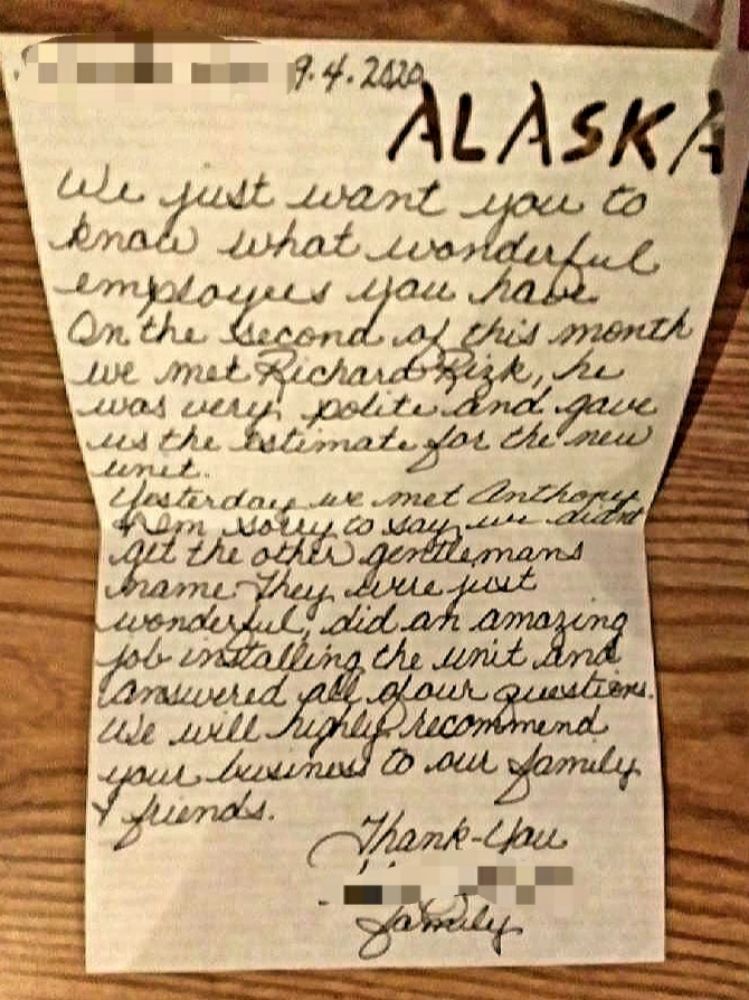 9.4.2020
ALASKA
We just want you to
know what wonderful
employees you have
On the second of this month
we met Richard Rizk, he
was very polite and gave
us the estimate for the new
unit.
Yesterday we met Anthony
& I'm sorry to say, we didn't
get the other gentlemans
name. They were just
wonderful, did an amazing
job installing the unit and
answered all of our questions.
We will highly recommend
your business to our family
& friends.
Thank-You
family